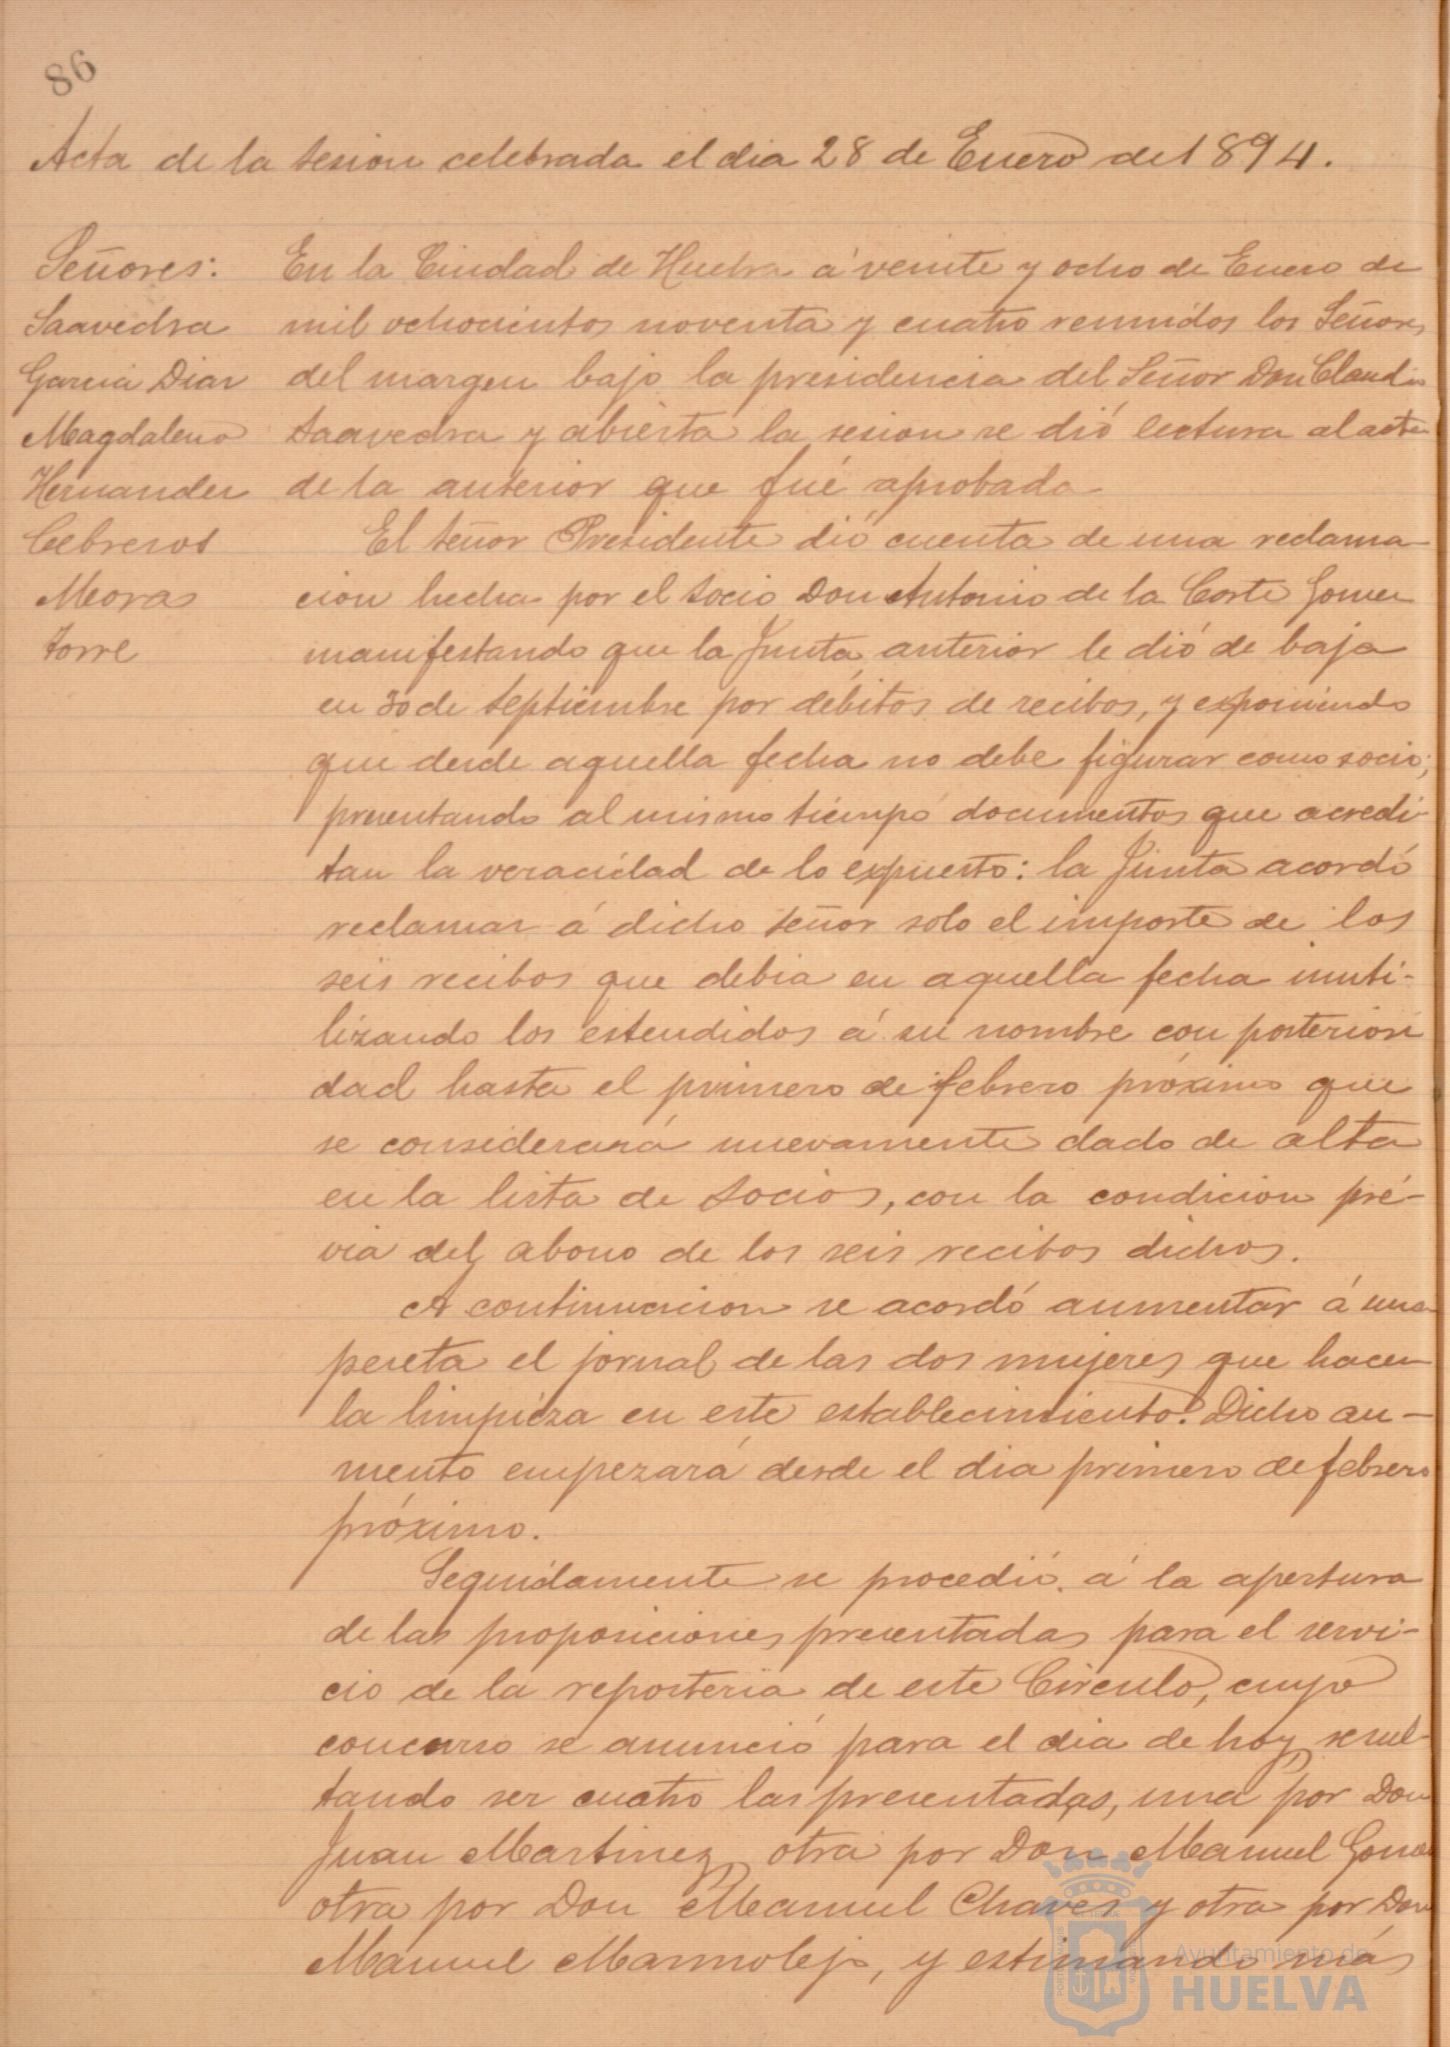 86
Acta de la sesion celebrada el dia 28 de Enero de 1894.
Señores:
Saavedra
Garcia Diaz
Magdaleno
Hernandez
Cebreros
Mora
Torre
En la Ciudad de Huelva á veinte y ocho de Enero de
mil ochocientos noventa y cuatro reunidos los Señores
del margen bajo la presidencia del Señor Don Claudio
Saavedra y abierta la sesion se dió lectura al acta
de la anterior que fué aprobada
El Señor Presidente dió cuenta de una reclama-
cion hecha por el socio Don Antonio de la Corte Gomez
manifestando que la Junta anterior le dió de baja
en 30 de septiembre por débitos de recibos, y exponiendo
que desde aquella fecha no debe figurar como socio;
presentando al mismo tiempo documentos que acredi-
tan la veracidad de lo expuesto: la Junta acordó
reclamar á dicho señor solo el importe de los
seis recibos que debia en aquella fecha inuti-
lizando los estendidos á su nombre con posteriori
dad hasta el primero de febrero próximo que
se considerará nuevamente dado de alta
en la lista de socios, con la condicion pré-
via del abono de los seis recibos dichos.
A continuacion se acordó aumentar á una
peseta el jornal de las dos mujeres que hacen
la limpieza en este establecimiento. Dicho au-
mento empezará desde el dia primero de febrero
próximo.
Seguidamente se procedió á la apertura
de las proposiciones presentadas para el servi-
cio de la reposteria de este Círculo, cuyo
concurso se anunció para el dia de hoy, resul-
tando ser cuatro las presentadas, una por Don
Juan Martinez, otra por Don Manuel Gomez
otra por Don Manuel Chaves y otra por Don
Manuel Marmolejo, y estimando más
Ayuntamiento de
HUELVA